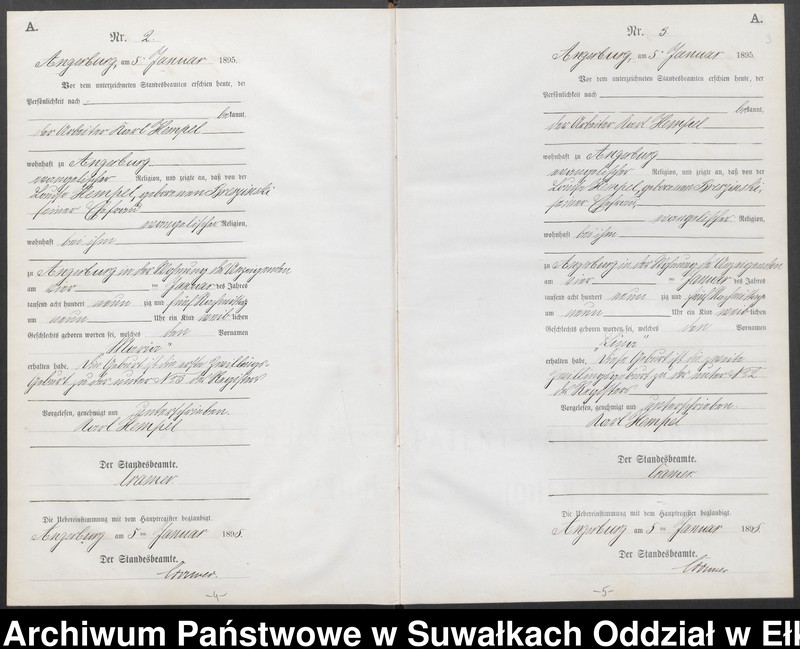 A.
Nr. 2.
Angerburg, am 5ten Januar 1895.
Vor dem unterzeichneten Standesbeamten erschien heute, der
Persönlichkeit nach
bekannt,
der Arbeiter Karl Hempel
wohnhaft zu Angerburg
evangelischer Religion, und zeigte an, daß von der
Louise Hempel, geborenen
seiner Ehefrau
evangelischer Religion,
wohnhaft bei ihm
zu Angerburg in der Wohnung des Anzeigenden
am vier ten Januar des Jahres
tausend acht hundert neun zig und fünf Nachmittag
um neun Uhr ein Kind weiblichen
Geschlechts geboren worden sei, welches den Vornamen
„Maria“
erhalten habe. Die Geburt ist die erste Zwillings-
Geburt zu der unter N: 3 des Registers
Vorgelesen, genehmigt und unterschrieben.
Karl Hempel
Der Standesbeamte.
Cramer.
Die Uebereinstimmung mit dem Hauptregister beglaubigt.
Angerburg am 5ten Januar 1895.
Der Standesbeamte.
Cramer.
-4-
A.
Nr. 3.
Angerburg, am 5ten Januar 1895.
Vor dem unterzeichneten Standesbeamten erschien heute, der
Persönlichkeit nach
bekannt,
der Arbeiter Karl Hempel
wohnhaft zu Angerburg
evangelischer Religion, und zeigte an, daß von der
Louise Hempel, geborenen
seiner Ehefrau,
evangelischer Religion,
wohnhaft bei ihm
zu Angerburg in der Wohnung des Anzeigenden
am vier ten Januar des Jahres
tausend acht hundert neun zig und fünf Nachmittag
um neun Uhr ein Kind weiblichen
Geschlechts geboren worden sei, welches den Vornamen
erhalten habe. Diese Geburt ist die zweite
Zwillingsgeburt zu der unter N: 2
des Registers
Vorgelesen, genehmigt und unterschrieben.
Karl Hempel
Der Standesbeamte.
Cramer.
Die Uebereinstimmung mit dem Hauptregister beglaubigt.
Angerburg am 5ten Januar 1895.
Der Standesbeamte.
Cramer.
-5-
Archiwum Państwowe w Suwałkach Oddział w Ełk